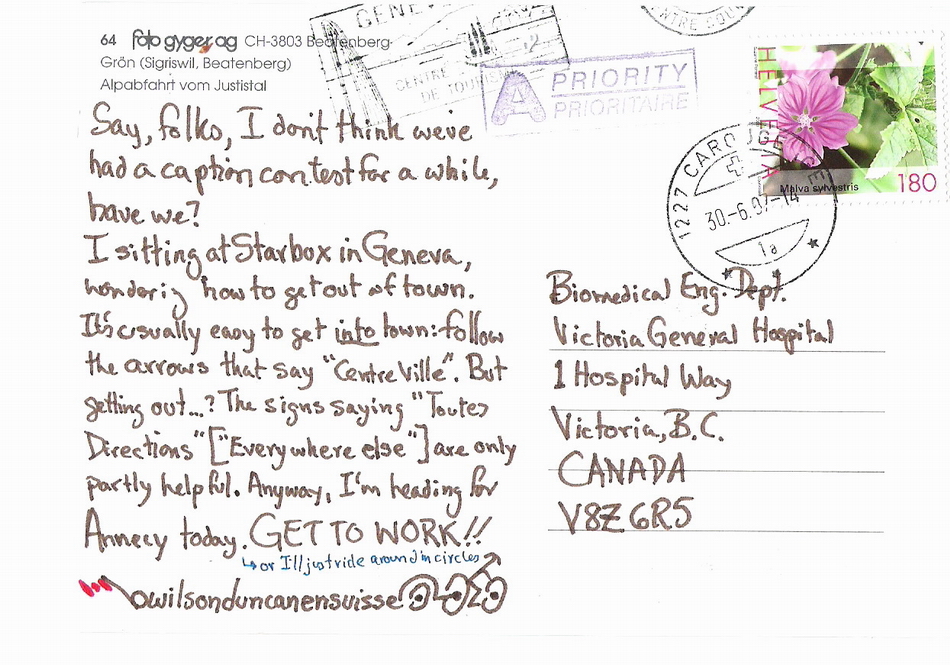 64 foto gyger ag CH-3803 Beatenberg
Grön (Sigriswil, Beatenberg)
Alpabfahrt vom Justistal
GENEV
CENTRE
DE TOURISM
A PRIORITY
PRIORITAIRE
HELVETIA
Malva sylvestris
180
1227 CAROUGE GE
30-6.97-14
1a
Say, folks, I don't think we've
had a caption contest for a while,
have we?
I sitting at Starbox in Geneva,
wonderig how to get out of town.
It's usually easy to get into town: follow
the arrows that say "Centre Ville". But
getting out...? The signs saying "Toutes
Directions" ["Everywhere else"] are only
partly helpful. Anyway, I'm heading for
Annecy today. GET TO WORK!!
↳ or I'll just ride around in circles
owilsonduncanensuisse
Biomedical Eng. Dept.
Victoria General Hospital
1 Hospital Way
Victoria, B.C.
CANADA
V8Z 6R5